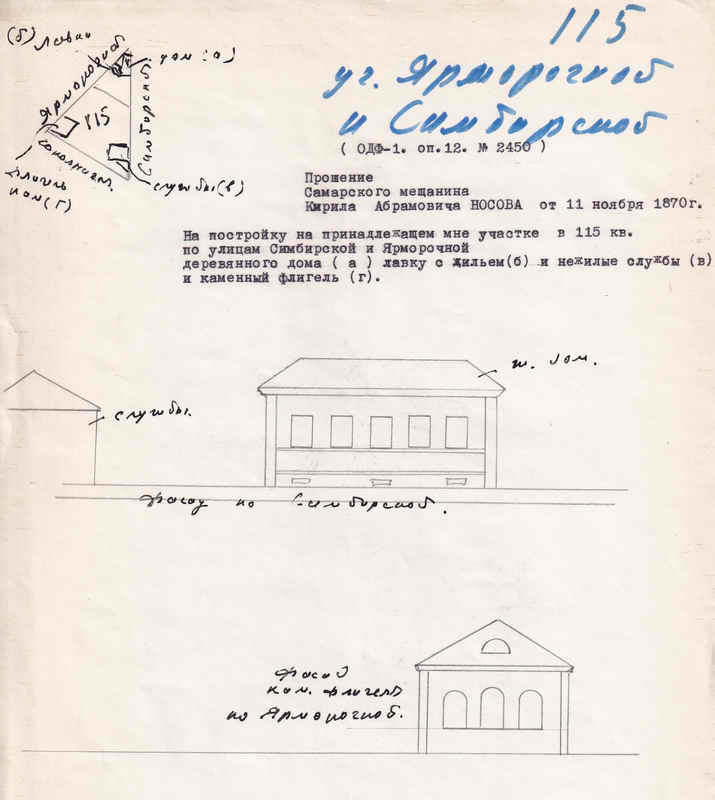 115
уг. Ярморочной
и Симбирской
(б) Лавка
дом (а)
Ярморочной
115
Симбирской
службы (в)
флигель
кам (г)
( ОДФ-1. оп.12. № 2450 )
Прошение
Самарского мещанина
Кирила Абрамовича НОСОВА от 11 ноября 1870г.
На постройку на принадлежащем мне участке в 115 кв.
по улицам Симбирской и Ярморочной
деревянного дома ( а ) лавку с жильем(б) и нежилые службы (в)
и каменный флигель (г).
ж. дом.
службы.
Фасад по Симбирской.
Фасад
кам. флигель
по Ярморочной.